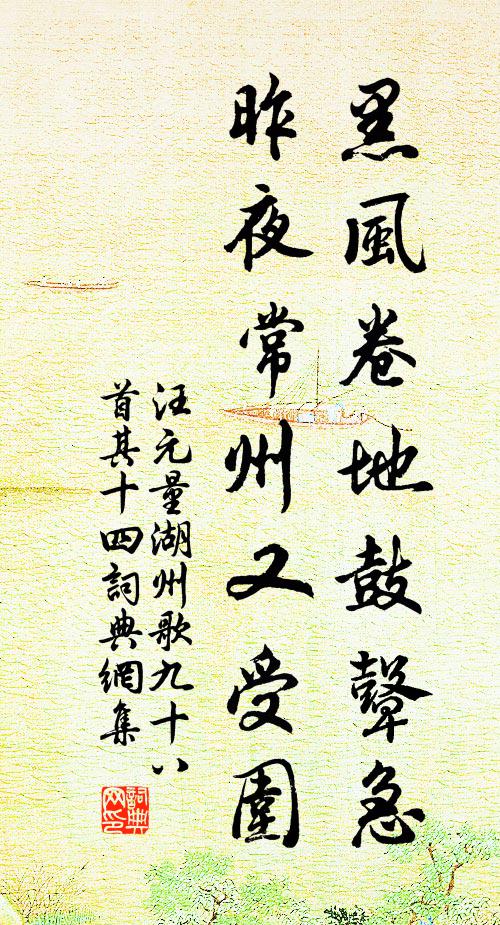 黑風卷地鼓聲急
昨夜常州又受圍
汪元量湖州歌九十八
首其十四詞典網集
詞典
网印